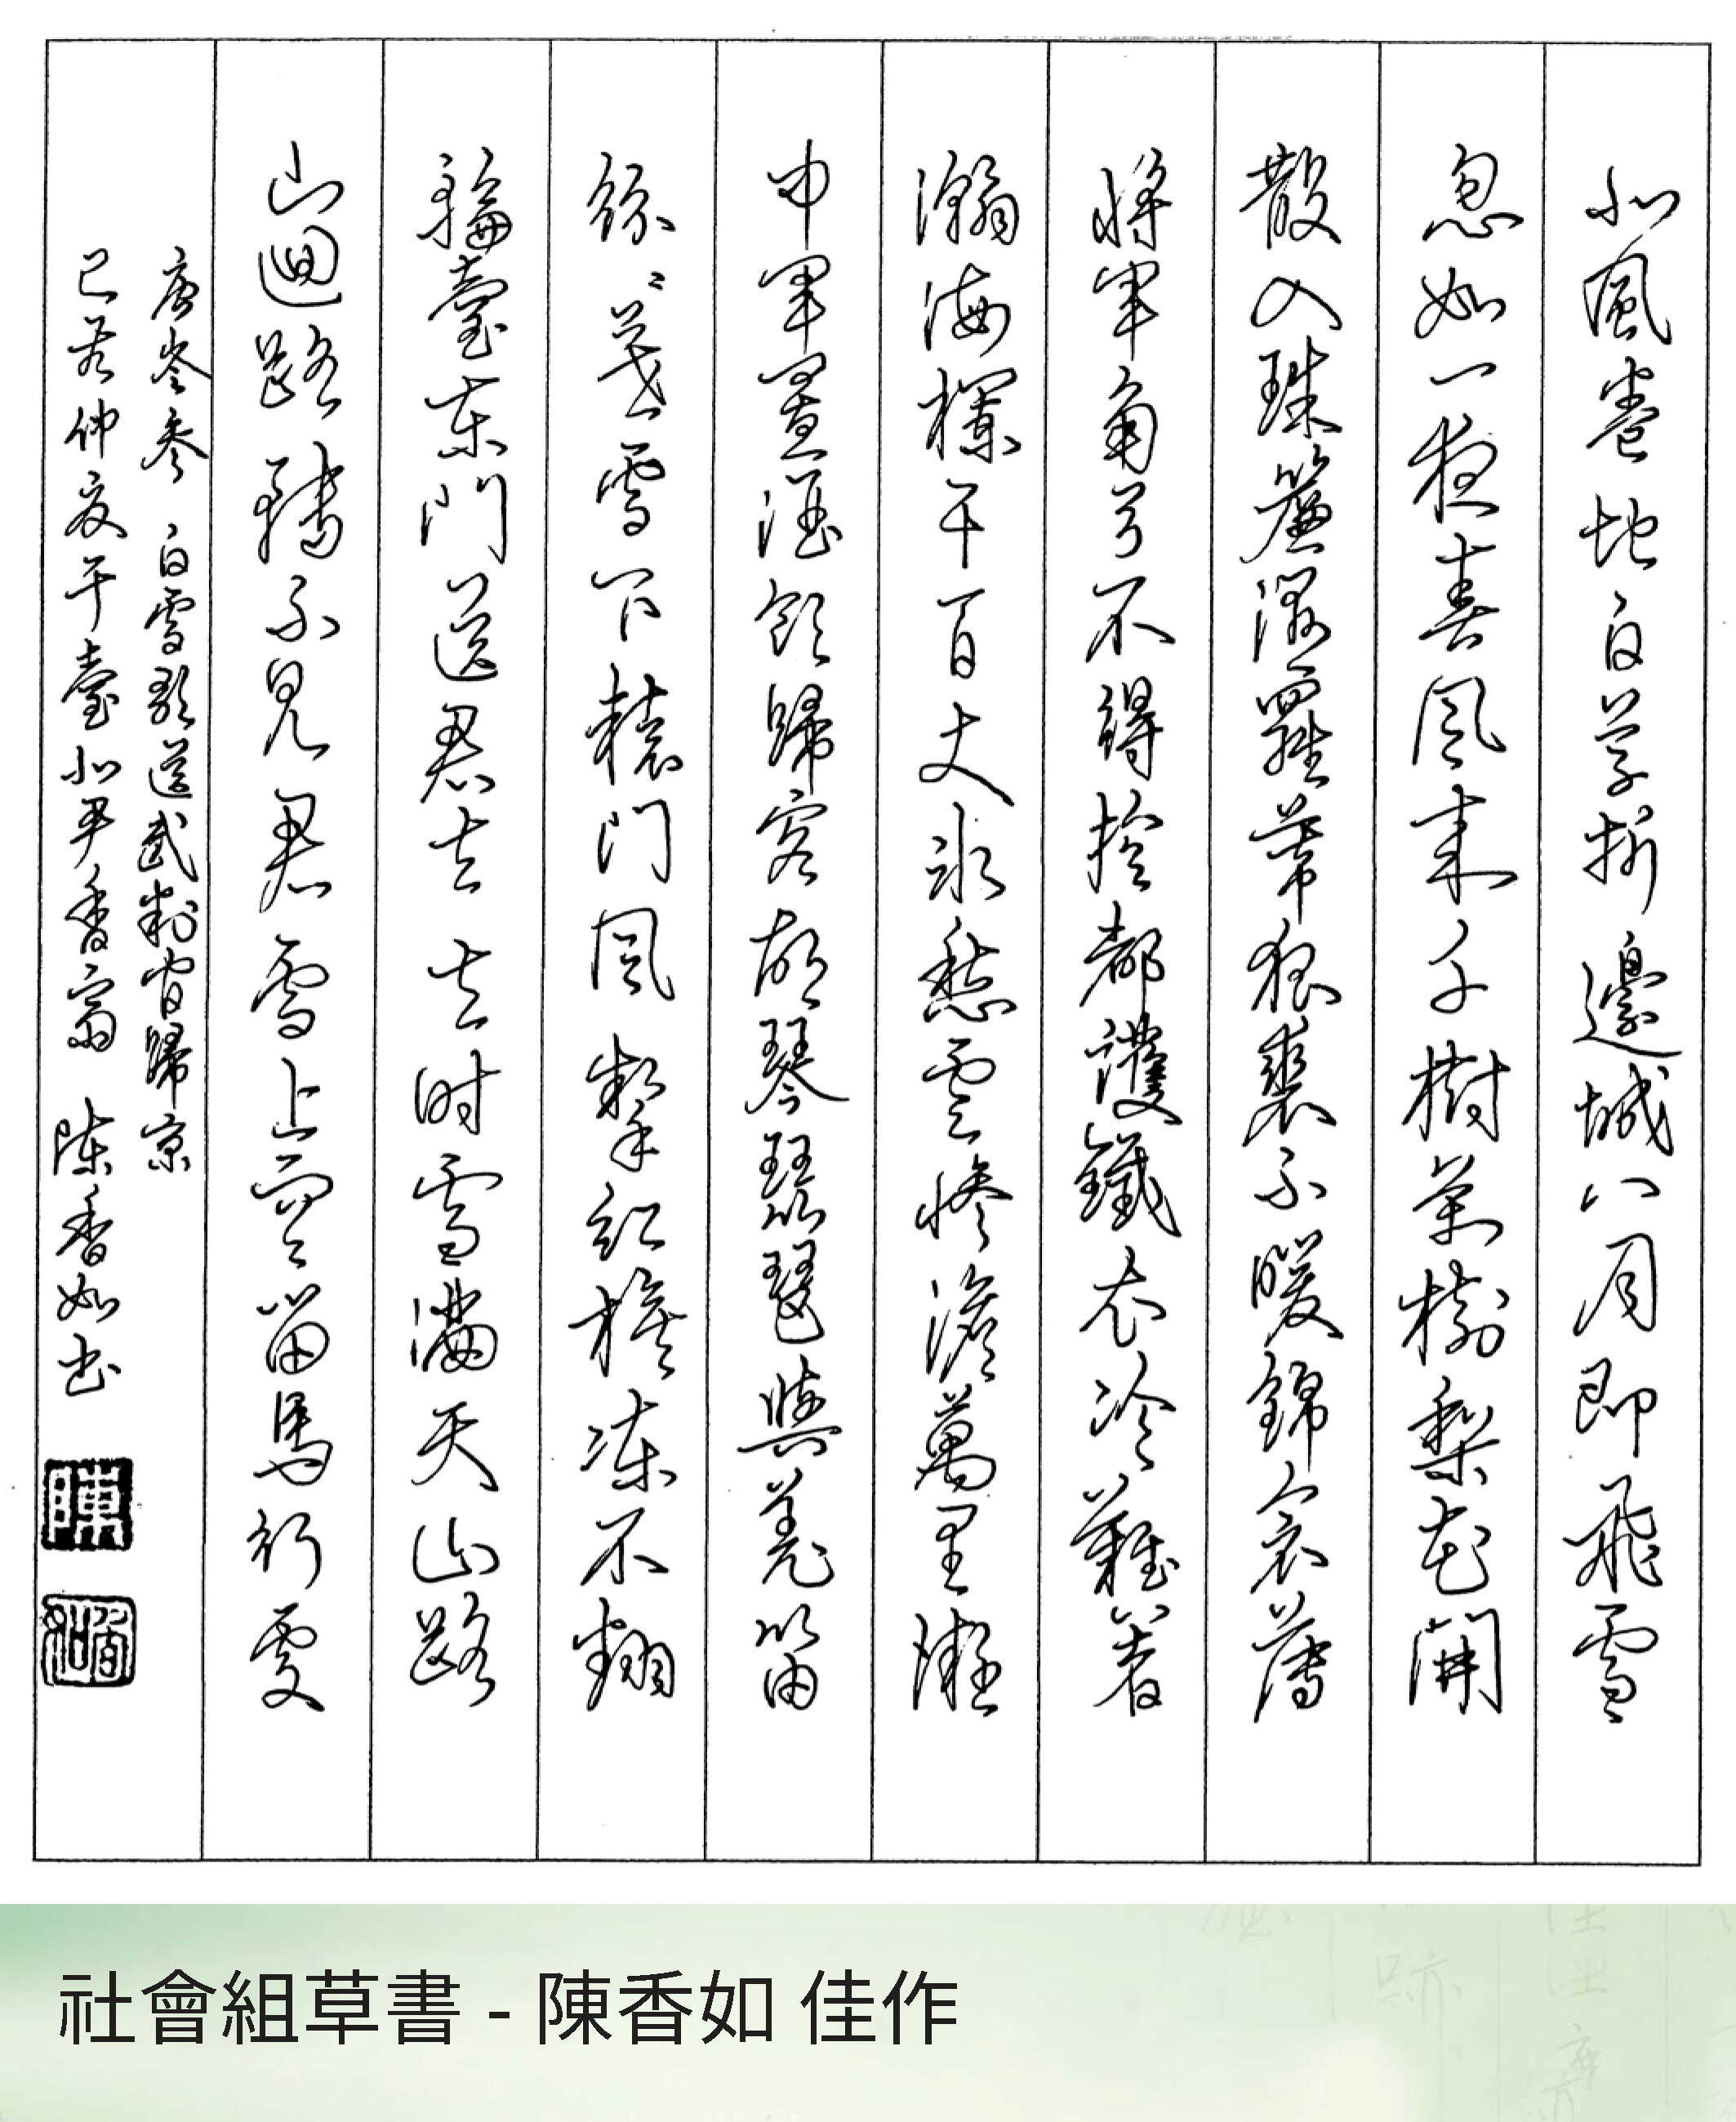 北風卷地白草折邊城八月即飛雪
忽如一夜春風來千樹萬樹梨花開
散入珠簾濕羅幕狐裘不暖錦衾薄
將軍角弓不得控都護鐵衣冷難著
瀚海欄干百丈冰愁雲慘澹萬里凝
中軍置酒飲歸客胡琴琵琶與羌笛
紛紛暮雪下轅門風掣紅旗凍不翻
輪臺東門送君去去時雪滿天山路
山迴路轉不見君雪上空留馬行處
唐岑參 白雪歌送武判官歸京
己亥仲夏于臺北尹香 陳香如書
陳
社會組草書 - 陳香如 佳作